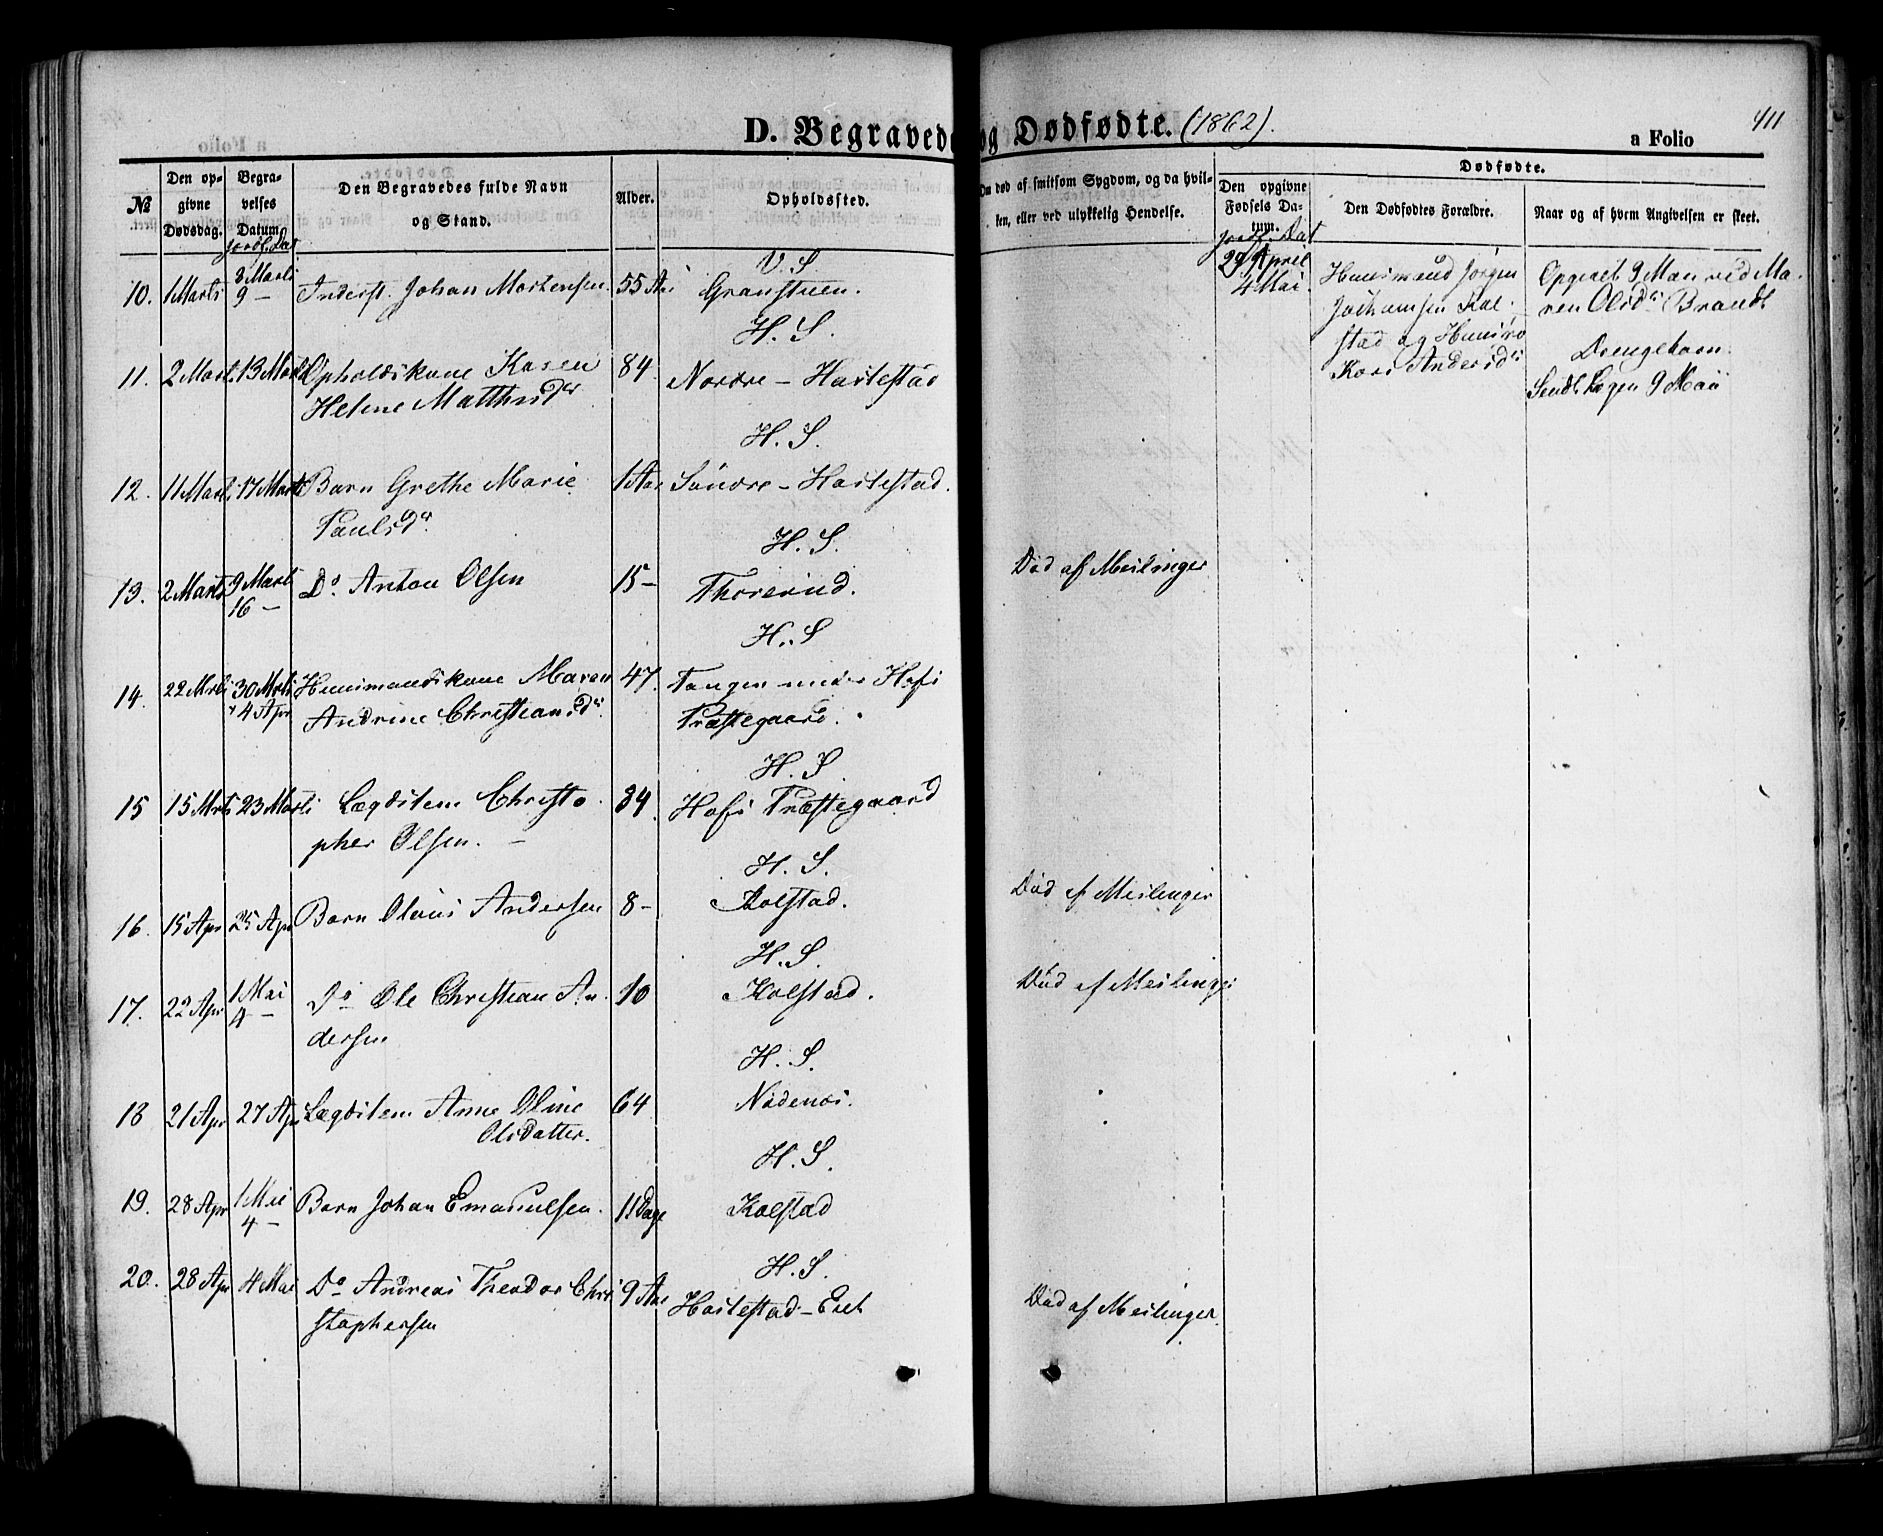 D. Begravede og Dødfødte. (1862).
a Folio
411
№
Den op-
givne
Dødsdag.
Begra-
velses
Datum
Jordf. Dat
Den Begravedes fulde Navn
og Stand.
Alder.
Opholdssted.
Om død af smitsom Sygdom, og da hvil-
ken, eller ved ulykkelig Hendelse.
Dødfødte.
Den opgivne
Fødsels Da-
tum.
Jordf. Dat
Den Dødfødtes Forældre.
Naar og af hvem Angivelsen er skeet.
V. S
10. 1 Marts 8 Marts Inderst. Johan Mortensen. 55 Aar Granstuen.
9 —
H. S.
11. 2 Marts 13 Marts Opholdskone Karen 84. Nordre - Harlestad
Helene Matthisd
H. S.
12. 11 Marts 17 Marts Barn Grethe Marie 1 Aar Søndre - Harlestad.
Paulsd
H. S.
13. 2 Marts 9 Marts Do Anton Olsen 15 — Thorsrud. Død af Meslinger
16 —
H. S
14. 22 Mrts 30 Mrts Huusmandskone Maren 47. Tangen under Hofs
4 Apr Andrine Christiansd Præstegaard.
H. S.
15 15 Mrts 23 Marts Lægdslem Christo- 84 Hofs Præstegaard
pher Olsen. —
H. S.
16. 15 Apr 25 Apr Barn Olaus Andersen 8 — Kolstad. Død af Meslinger
H. S.
17. 22 Apr 1 Mai Do Ole Christian An- 10 Kolstad. Død af Meslinger
4 — dersen
H. S.
18 21 Apr 27 Apr Lægdslem Anne Oline 64
Olsdatter.
H. S.
19. 28 Apr 1 Mai Barn Johan Emanuelsen. 11 Dage Kolstad
4 —
H. S.
20. 28 Apr 4 Mai Do Andreas Theodor Chri- 9 Aar Harlestad - Eiet Død af Meslinger.
stophersen
29 April
4 Mai.
Huusmand Jørgen
Jochumsen Kol-
stad og Hustro
Kari Andersd
Opgivet 9 Mai ved Ma-
ren Olsd Brandt
Drengebarn.
Sendt Lægen 9 Mai